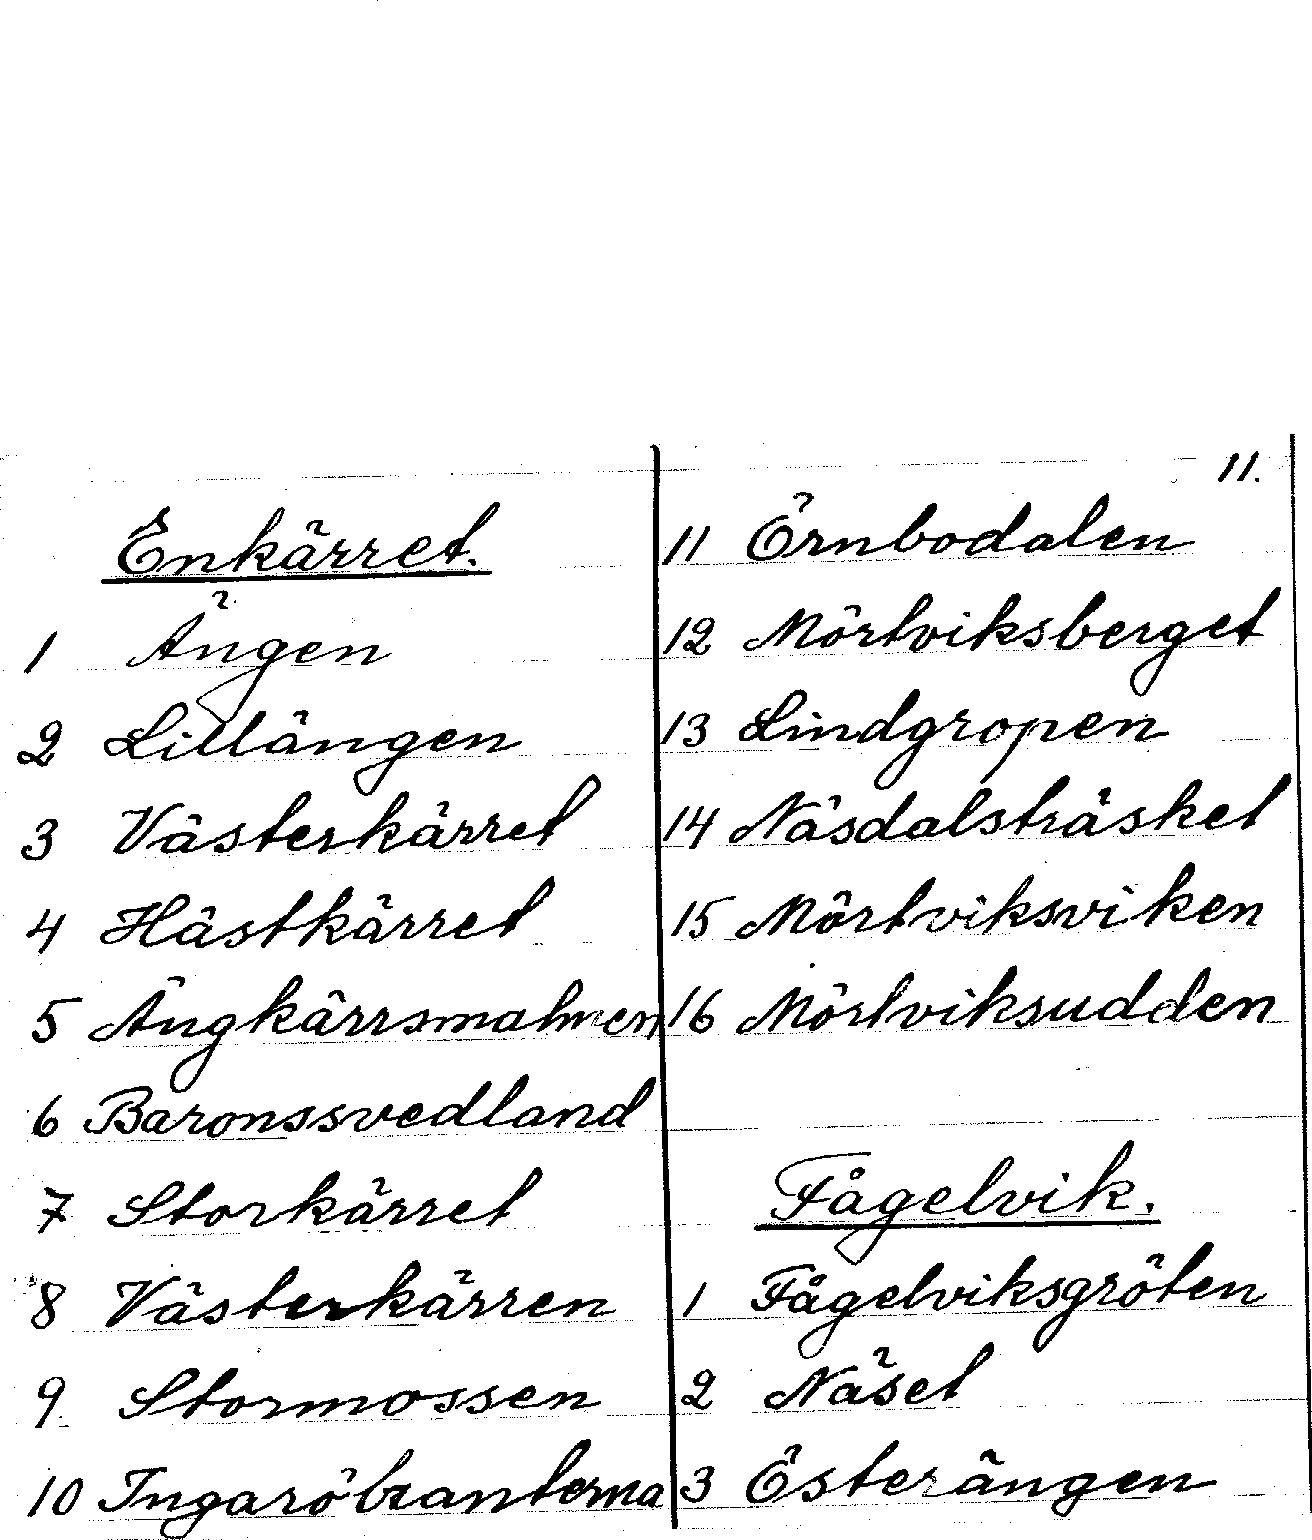 11.
Enkärret.
1 Ängen
2 Lillängen
3 Västerkärret
4 Hästkärret
5 Ängkärrsmalmen
6 Baronssvedland
7 Storkärret
8 Västerkärren
9 Stormossen
10 Ingaröbranterna
11 Örnbodalen
12 Mörtviksberget
13 Lindgropen
14 Näsdalsträsket
15 Mörtviksviken
16 Mörtviksudden
Fågelvik.
1 Fågelviksgröten
2 Näset
3 Österängen